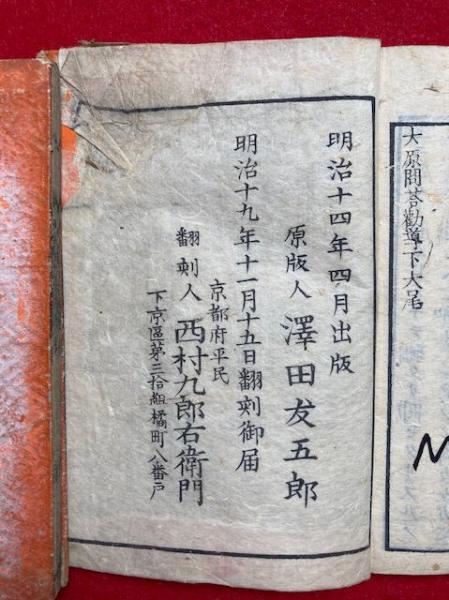 大原問荅勸導下大尾
明治十四年四月出版
原版人 澤田友五郎
明治十九年十一月十五日翻刻御届
京都府平民
翻刻人 西村九郎右衛門
下京區第三拾組橘町八番戸